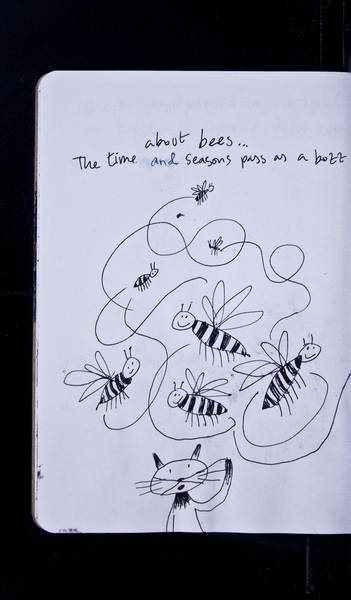 about bees...
The time and seasons pass as a bozz